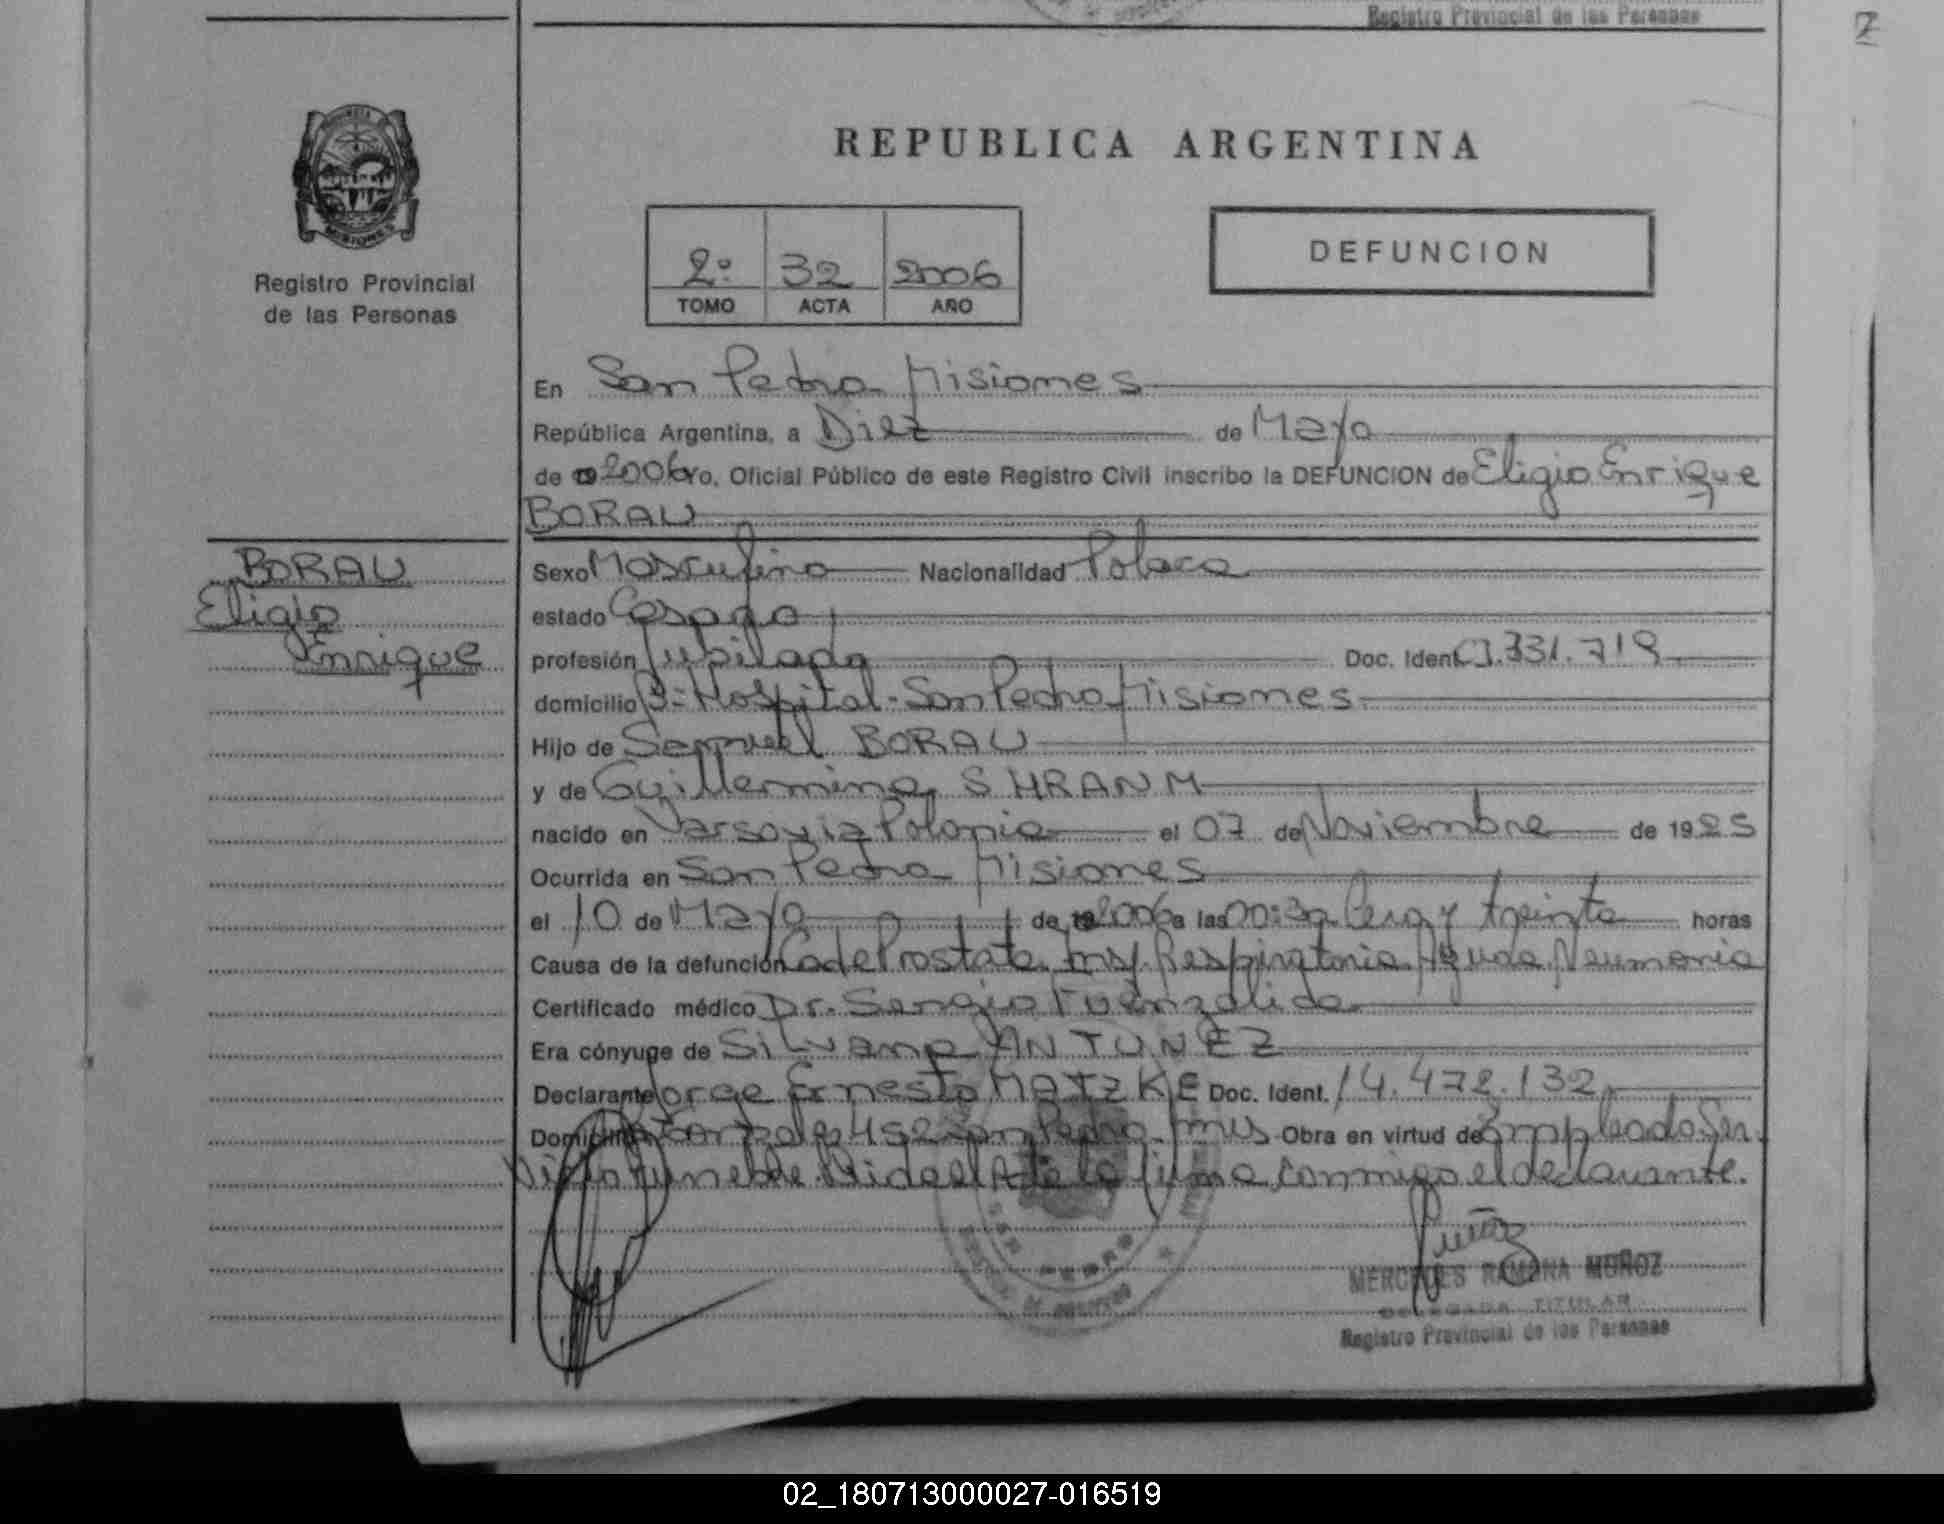 Registro Provincial de las Personas
2
PROVINCIA DE
MISIONES
Registro Provincial
de las Personas
REPUBLICA ARGENTINA
2º 32 2006
TOMO ACTA AÑO
DEFUNCION
En San Pedro Misiones
República Argentina, a Diez de Mayo
de 2006 Yo, Oficial Público de este Registro Civil inscribo la DEFUNCION de Eligio Enrique
BORAU
BORAU
Eligio
Enrique
Sexo Masculino Nacionalidad Polaca
estado Casado
profesión Jubilado Doc. Ident. CI.331.719
domicilio Bº Hospital - San Pedro Misiones
Hijo de Samuel BORAU
y de Guillermina SHRANM
nacido en Varsovia Polonia el 07 de Noviembre de 1925
Ocurrida en San Pedro Misiones
el 10 de Mayo de 2006 a las 00:30 Cero y treinta horas
Causa de la defunción Ca de Prostata. Ins. Respiratoria Aguda, Neumonia
Certificado médico Dr. Sergio Fuenzalida
Era cónyuge de Silvana ANTUNEZ
Declarante Jorge Ernesto MATZKE Doc. Ident. 14.472.132
Domicilio San Pedro. Mnes Obra en virtud de Empleado Ser
vicio Funebre. Leida el Acta la firma conmigo el declarante.
SAN PEDRO
MERCEDES RAMONA MUÑOZ
DELEGADA TITULAR
Registro Provincial de las Personas
02_180713000027-016519